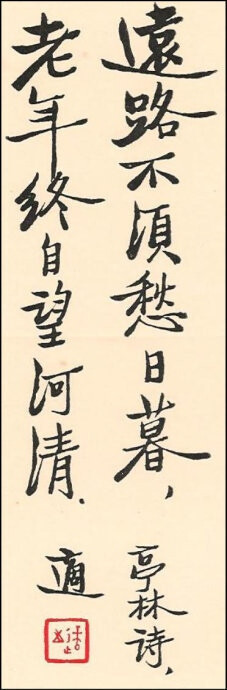 遠路不須愁日暮，
老年終自望河清．
亭林詩，
適